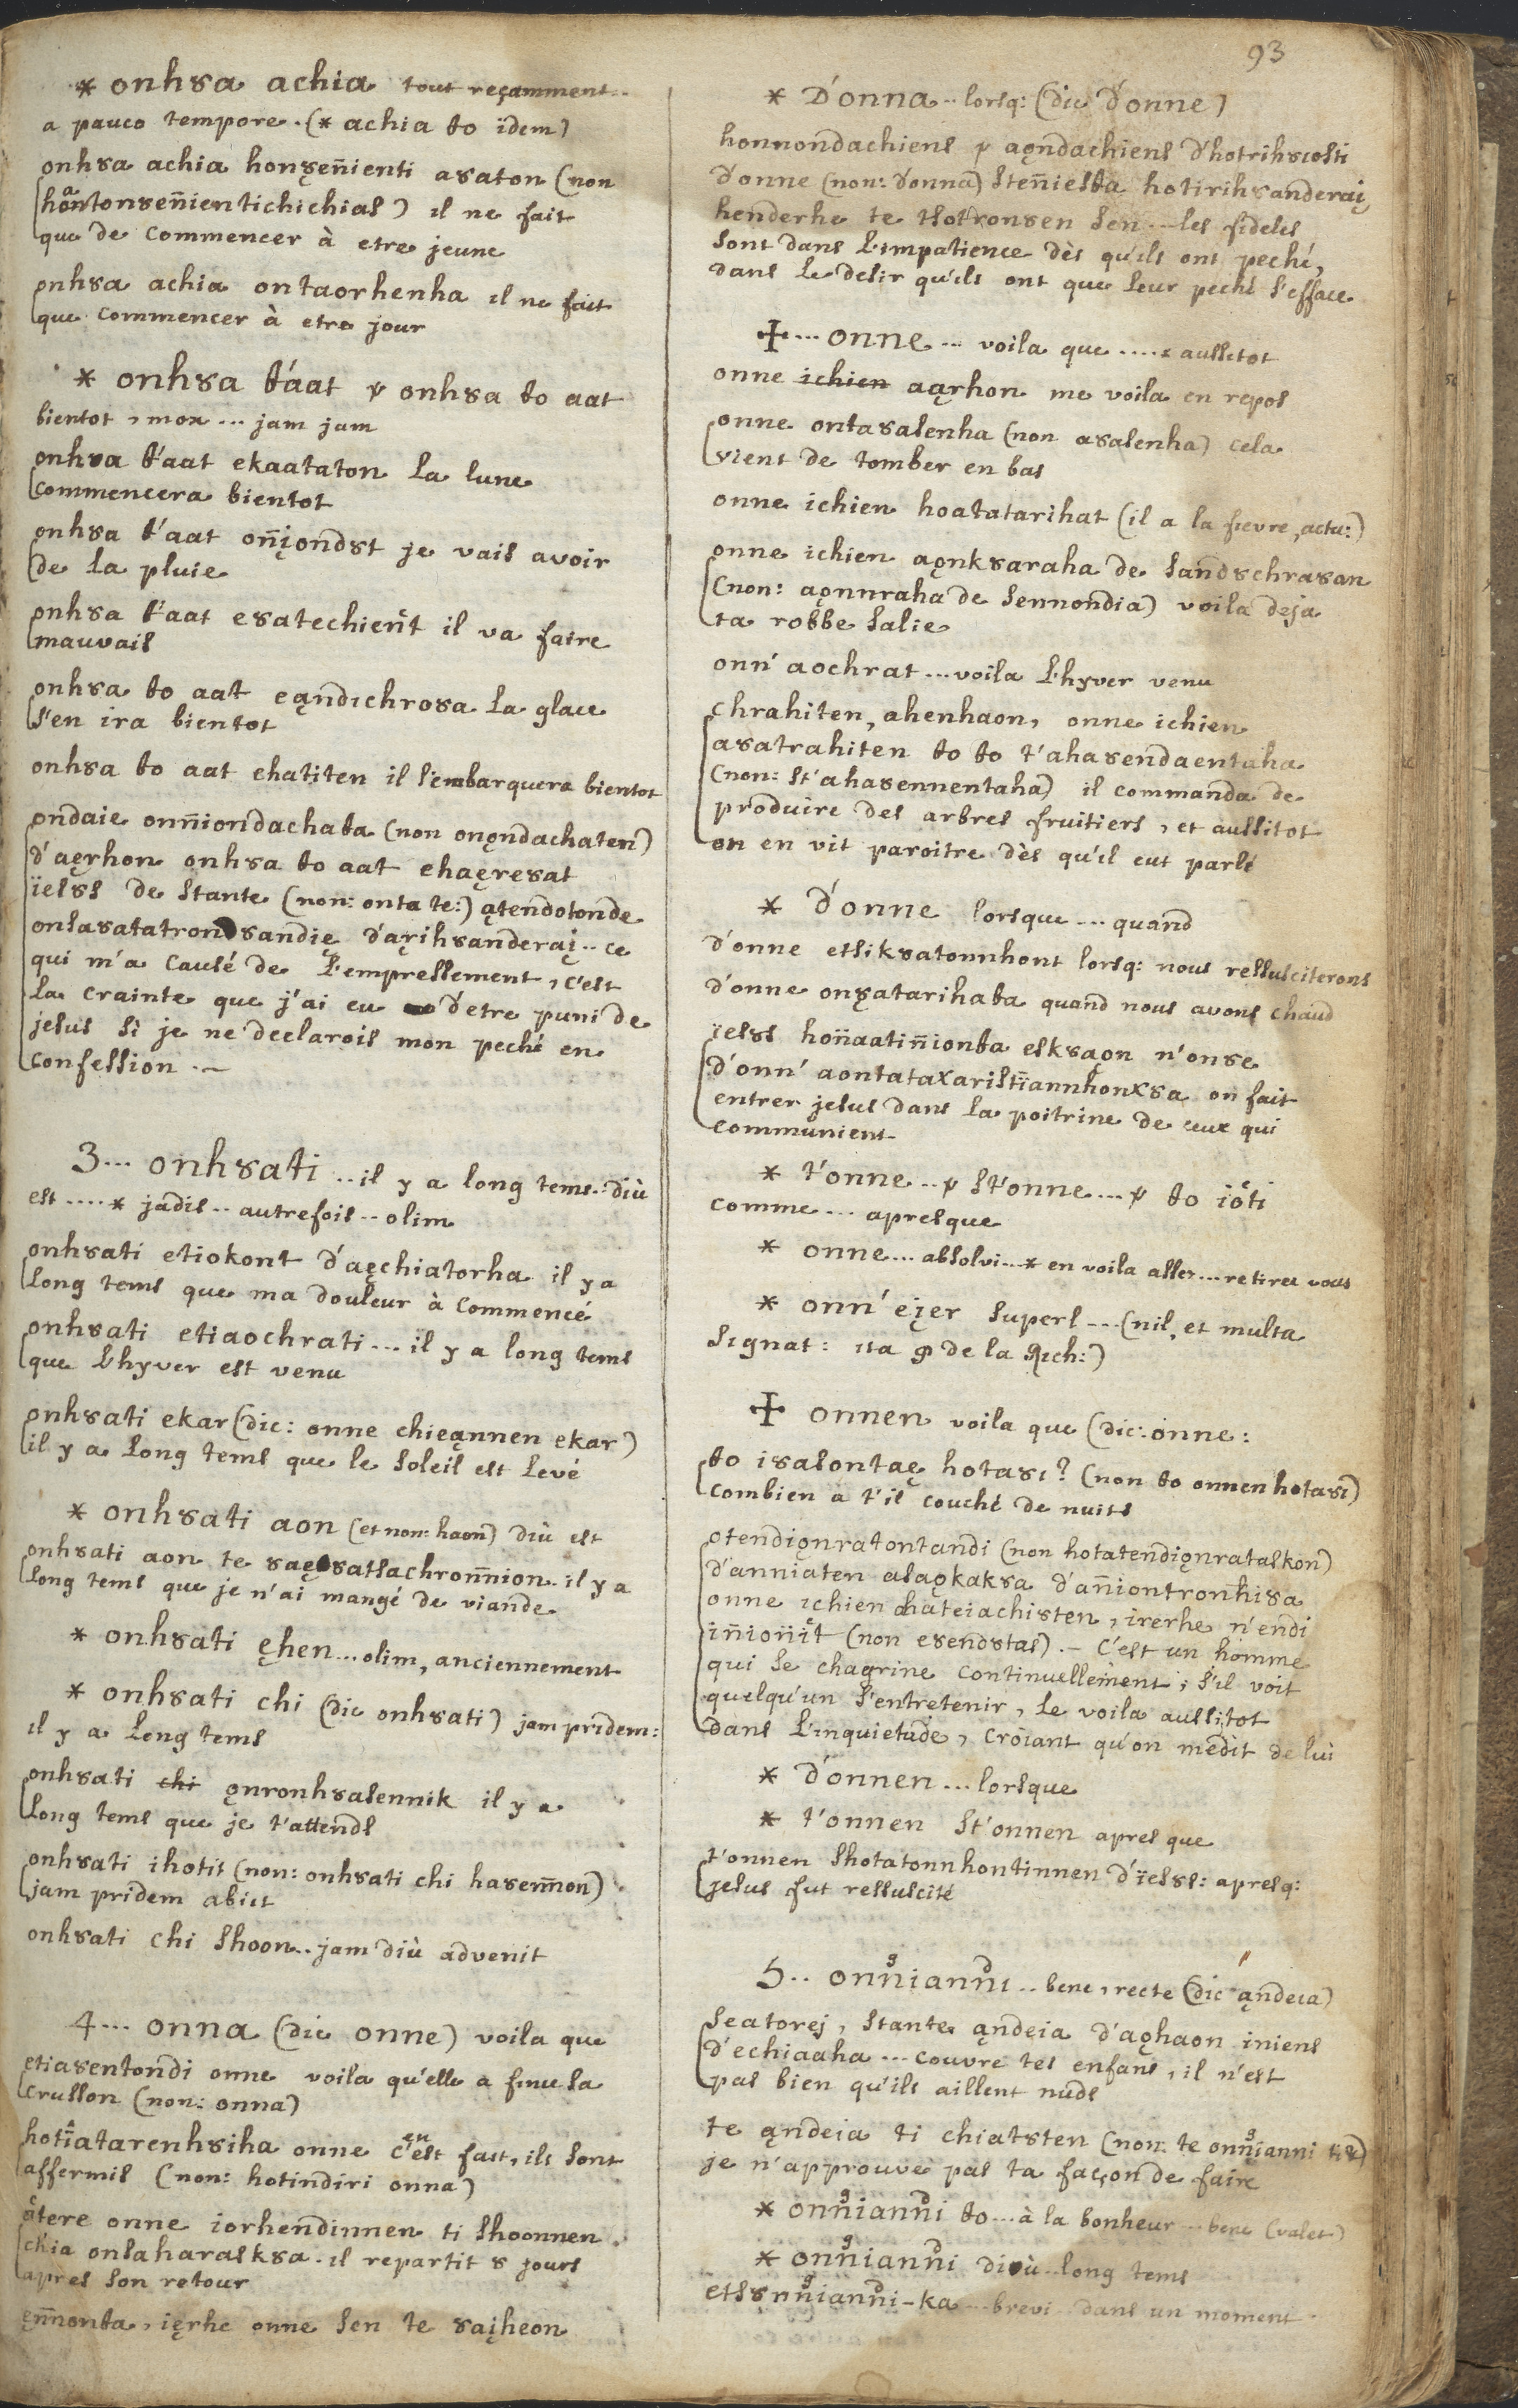 93
* onh8a achia tout reçamment..
a pauco tempore. (* achia to ïdem)
onh8a achia hon8ȩñienti a8aton (non
honton8eñientichichias) il ne fait
que de commencer à etre jeune
onh8a achia ontaorhenha il ne fait
que commencer à etre jour
* onh8a t'áat onh8a to aat
bientot, mox ... jam jam
onh8a t'aat ekaataton La lune
commencera bientot
onh8a t'aat oñįondst je vais avoir
de la pluie
onh8a t'aat e8atechieñt il va faire
mauvais
onh8a to aat eąndichro8a La glace
s'en ira bientot
onh8a to aat ehatiten il s'embarquera bientot
ondaie onñiondachata (non onǫndachaten)
d'aȩrhon onh8a to aat ehaȩre8at
ïes8s de stante (non: onta te:) ątendotonde
onsa8atatron8andiȩ d'ąrih8anderaį.. ce
qui m'a causé de L'empressement, c'est
La crainte que j'ai eu d'etre puni de
jesus si je ne declarois mon peché en
confession .–
3... onh8ati .. il y a long tems.. diù
est .... * jadis .. autrefois .. olim
onh8ati etiokont d'aȩchiatorha il y a
long tems que ma douleur à commencé
onh8ati etiaochrati ... il y a long tems
que L'hyver est venu
onh8ati ekar (dic: onne chieąnnen ekar)
il y a long tems que le soleil est Levé
* onh8ati aon (et non: haon) diù est
onh8ati aon te 8aȩ8atsachronñion. il y a
long tems que je n'ai mangé de viande
* onh8ati ȩhen ... olim, anciennement
* onh8ati chi (dic onh8ati) jam pridem:
il y a long tems
onh8ati chi ǫnronh8asennik il y a
long tems que je t'attends
onh8ati ihotis (non: onh8ati chi ha8enñon)
jam pridem abiit
onh8ati chi shoon .. jam diù advenit
4... onna (dic onne) voila que
etia8entondi onne voila qu'elle a finie sa
crusson (non: onna)
hotiatarenh8iha onne c'en est fait, ils sont
affermis (non: hotindiri onna)
átere onne iorhendinnen ti shoonnen
chia onsaharask8a. il repartit 8 jours
apres son retour
ȩnñonta, iȩrhe onne sen te 8aįheon
* D'onna.. lorsq: (dic d'onne)
honnondachiens aǫndachiens d'hotrih8iosti
d'onne (non: donna) steñiesta hotirih8anderaį
henderhe te tsotron8en sen ... les fideles
sont dans L'impatience dès qu'ils ont peché,
dans le desir qu'ils ont que leur peché s'efface
✠ ... onne ... voila que ....* aussitot
onne ichien aąrhon me voila en repos
onne onta8asenha (non a8asenha) cela
vient de tomber en bas
onne ichien hoatatarihat (il a la fievre, actu:)
onne ichien aǫnk8araha de sand8chra8an
(non: aǫnnraha de sennondia) voila deja
ta robbe salie
onn' aochrat ... voila L'hyver venu
chrahiten, ahenhaon, onne ichien
a8atrahiten to to t'aha8endaentaha
(non: st'aha8ennentaha) il commanda de
produire des arbres fruitiers, et aussitot
on en vit paroitre dès qu'il eut parlé
* d'onne lorsque ... quand
d'onne etsik8atonnhont lorsq: nous ressusciterons
d'onne on8atarihata quand nous avons chaud
ïes8s hoñaatiñionta esk8aǫn n'on8e
d'onn' aontataxaristïannhonx8a on fait
entrer jesus dans La poitrine de ceux qui
communient
* t'onne .. st'onne ... to iôti
comme ... apresque
* onne ... absolvi ...* en voila assez ... retirez vous
* onn' eįer supers ... (nil, et multa
signat: ita de la Rich:)
✠ onnen voila que (dic: onne:
to i8asontaȩ hota8i? (non to onnen hota8i)
combien a t'il couché de nuits
otendiǫnratontandi (non hotatendiǫnrataskon)
d'anniaten asaǫkak8a d'añiontronhi8a
onne ichien hateiachisten, irerhe n'endi
iñioñit (non e8end8tas) .– C'est un homme
qui se chagrine continuellement; s'il voit
quelqu'un s'entretenir, le voila aussitot
dans L'inquietude, croiant qu'on médit de lui
* d'onnen ... lorsque
* t'onnen st'onnen apres que
t'onnen shotatonnhontinnen d'ïes8s: apresq:
jesus fut ressuscité
5.. onñianni .. bene, recte (dic ąndeia)
seatorej, stante ąndeia d'aǫhaon iniens
d'echiaaha ... couvre tes enfans, il n'est
pas bien qu'ils aillent nuds
te ąndeia ti chiatsten (non: te onñianni ti&)
je n'approuve pas ta façon de faire
* onñianni to ... à la bonheur ... bene (valet)
* onñianni diù .. long tems
ets8nñianni-ka ... brevi .. dans un moment